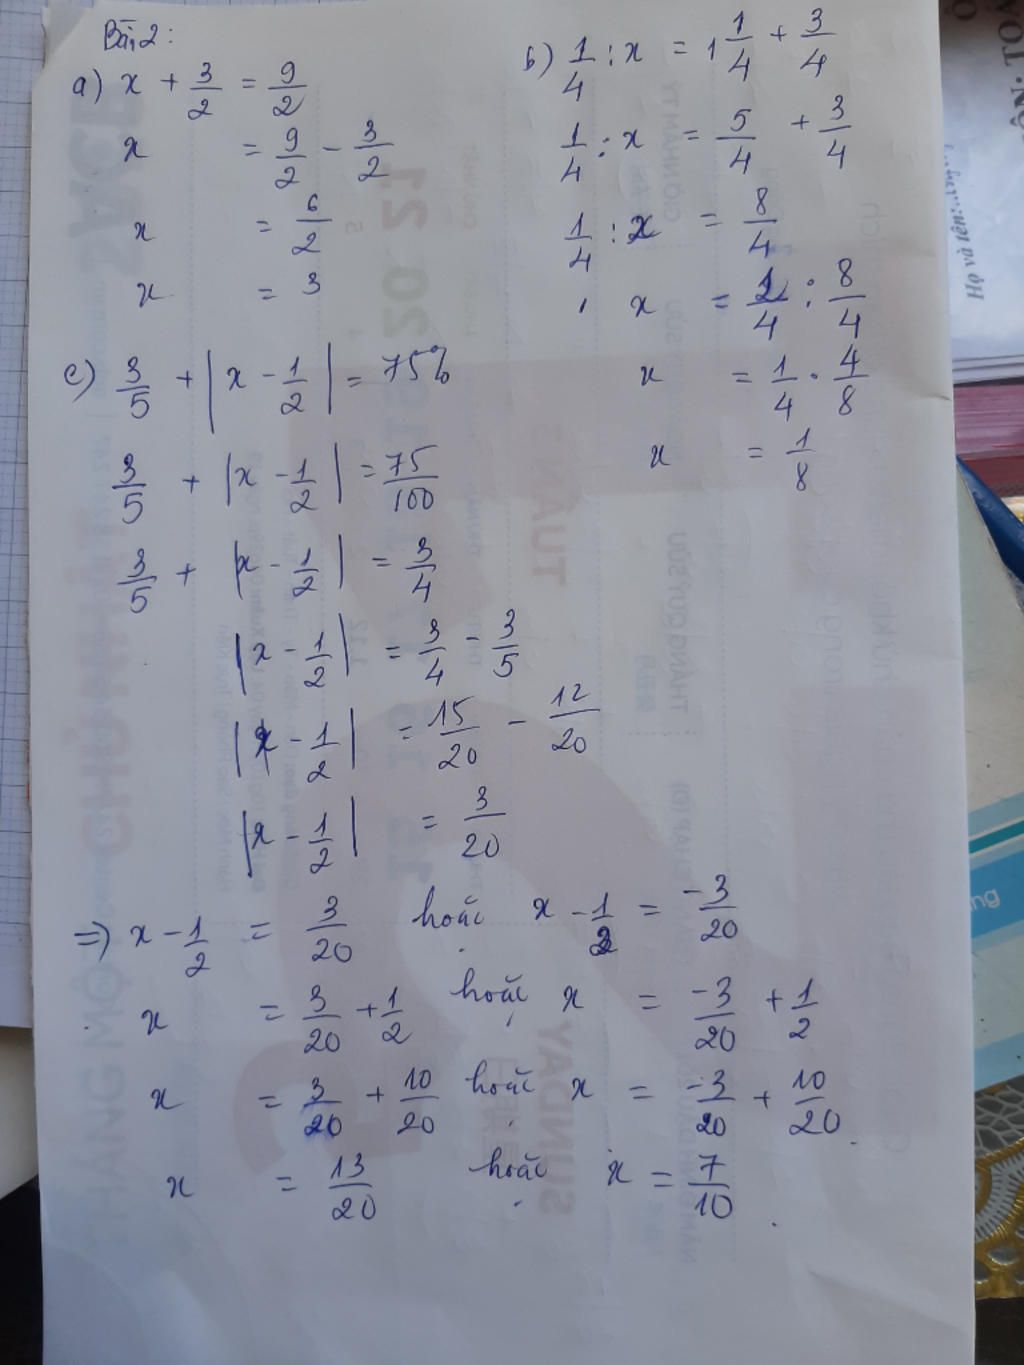 Bài 2:
a) x + 3/2 = 9/2
x = 9/2 - 3/2
x = 6/2
x = 3
b) 1/4 : x = 1 1/4 + 3/4
1/4 : x = 5/4 + 3/4
1/4 : x = 8/4
x = 1/4 : 8/4
x = 1/4 . 4/8
x = 1/8
c) 3/5 + |x - 1/2| = 75%
3/5 + |x - 1/2| = 75/100
3/5 + |x - 1/2| = 3/4
|x - 1/2| = 3/4 - 3/5
|x - 1/2| = 15/20 - 12/20
|x - 1/2| = 3/20
=) x - 1/2 = 3/20 hoặc x - 1/2 = -3/20
x = 3/20 + 1/2 hoặc x = -3/20 + 1/2
x = 3/20 + 10/20 hoặc x = -3/20 + 10/20
x = 13/20 hoặc x = 7/10
Họ và tên: